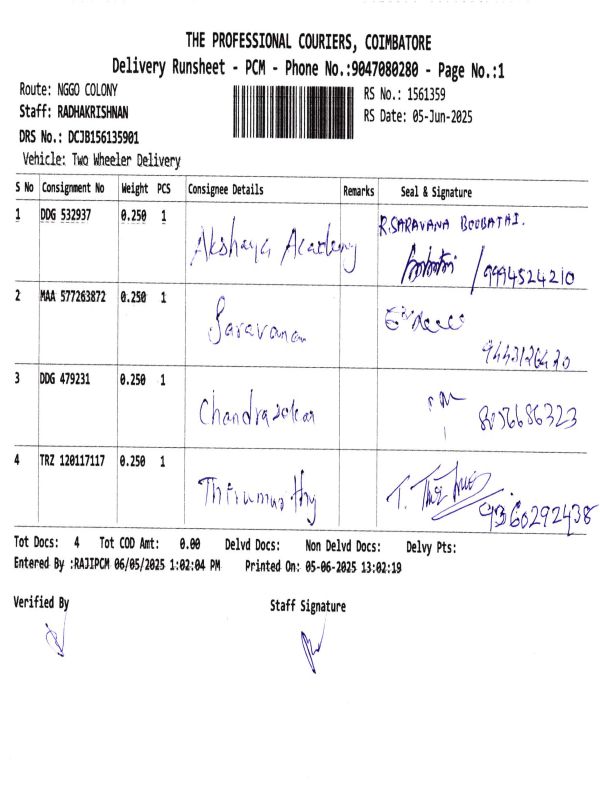 THE PROFESSIONAL COURIERS, COIMBATORE
Delivery Runsheet - PCM - Phone No.:9047080280 - Page No.:1
Route: NGGO COLONY RS No.: 1561359
Staff: RADHAKRISHNAN RS Date: 05-Jun-2025
DRS No.: DCJB156135901
Vehicle: Two Wheeler Delivery
S No Consignment No Weight PCS Consignee Details Remarks Seal & Signature
1 DDG 532937 0.250 1 Akshaya Academy R.SARAVANA BOOBATHI.
9994524210
2 MAA 577263872 0.250 1 Saravanan
3 DDG 479231 0.250 1 Chandrasekar 8056686323
4 TRZ 120117117 0.250 1 Thirumurthy
9360292438
Tot Docs: 4 Tot COD Amt: 0.00 Delvd Docs: Non Delvd Docs: Delvy Pts:
Entered By :RAJIPCM 06/05/2025 1:02:04 PM Printed On: 05-06-2025 13:02:19
Verified By Staff Signature